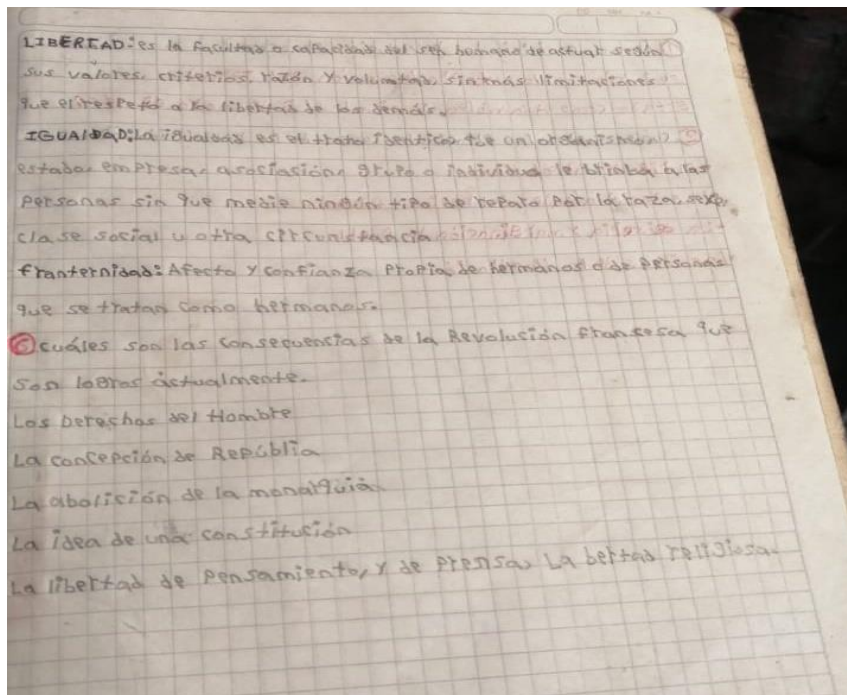 LIBERTAD: es la facultad o capacidad del ser humano de actuar según
sus valores, criterios, razón y voluntad, sin más limitaciones
que el respeto a la libertad de los demás.
IGUALDAD: La igualdad es el trato identico que un organismo,
estado, empresa, asosiasión, grupo o individuo le brinda a las
personas sin que medie ningún tipo de reparo por la raza, sexo,
clase social u otra circunstancia
franternidad: Afecto y confianza propia de hermanos o de personas
que se tratan como hermanos.
6 cuáles son las consecuencias de la Revolución francesa que
son logros actualmente.
Los Derechos del Hombre
La concepción de Repúblia
La abolición de la monarquía
La idea de una constitución
La libertad de pensamiento, y de prensa, La bertad religiosa.